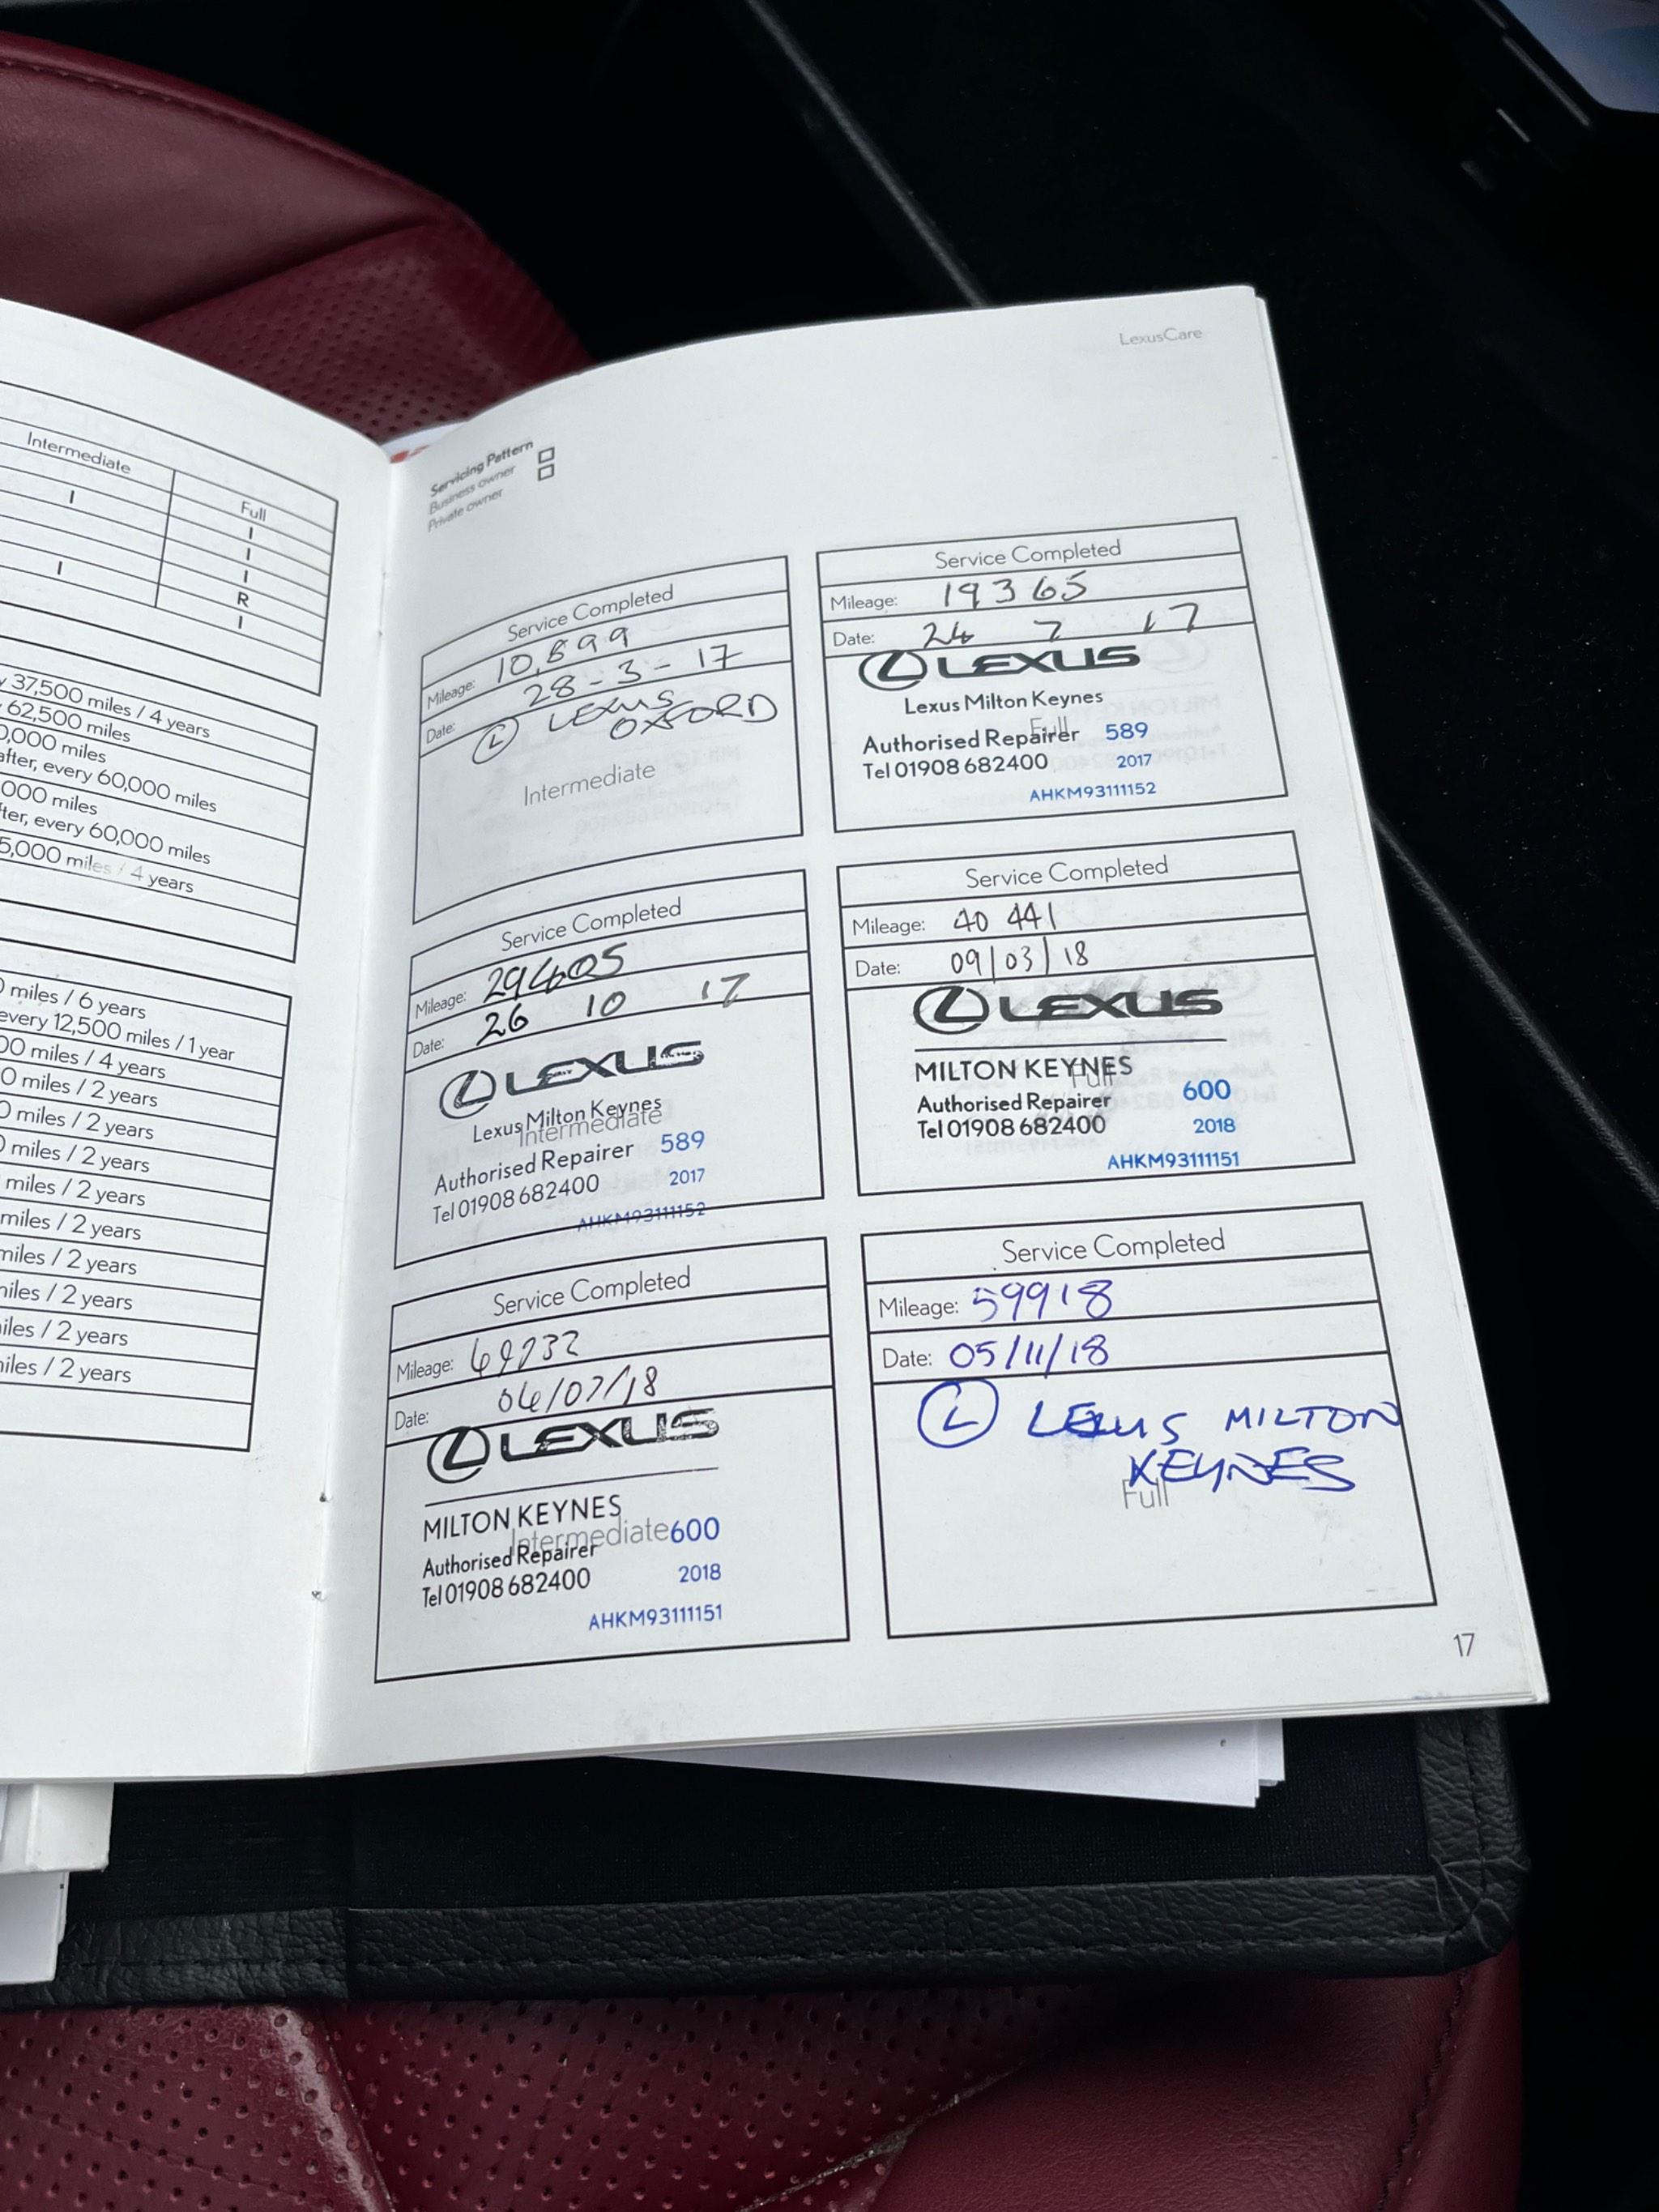 LexusCare
Intermediate
Full
I
I
I
I
I
R
I
y 37,500 miles / 4 years
62,500 miles
0,000 miles
after, every 60,000 miles
,000 miles
ter, every 60,000 miles
5,000 miles / 4 years
0 miles / 6 years
every 12,500 miles / 1 year
00 miles / 4 years
0 miles / 2 years
0 miles / 2 years
0 miles / 2 years
miles / 2 years
miles / 2 years
miles / 2 years
niles / 2 years
iles / 2 years
niles / 2 years
Servicing Pattern
Business owner
Private owner
Service Completed
Mileage: 10,899
Date: 28-3-17
L LEXUS
OXFORD
Intermediate
Service Completed
Mileage: 19365
Date: 24 7 17
LEXUS
Lexus Milton Keynes
Full
Authorised Repairer 589
Tel 01908 682400 2017
AHKM93111152
Service Completed
Mileage: 29405
Date: 26 10 17
LEXUS
Lexus Milton Keynes
Intermediate
Authorised Repairer 589
Tel 01908 682400 2017
AHKM93111152
Service Completed
Mileage: 40 441
Date: 09/03/18
LEXUS
MILTON KEYNES
Full
Authorised Repairer 600
Tel 01908 682400 2018
AHKM93111151
Service Completed
Mileage:
Date: /07/18
LEXUS
MILTON KEYNES
Intermediate 600
Authorised Repairer
Tel 01908 682400 2018
AHKM93111151
Service Completed
Mileage: 59918
Date: 05/11/18
L LEXUS MILTON
KEYNES
Full
17